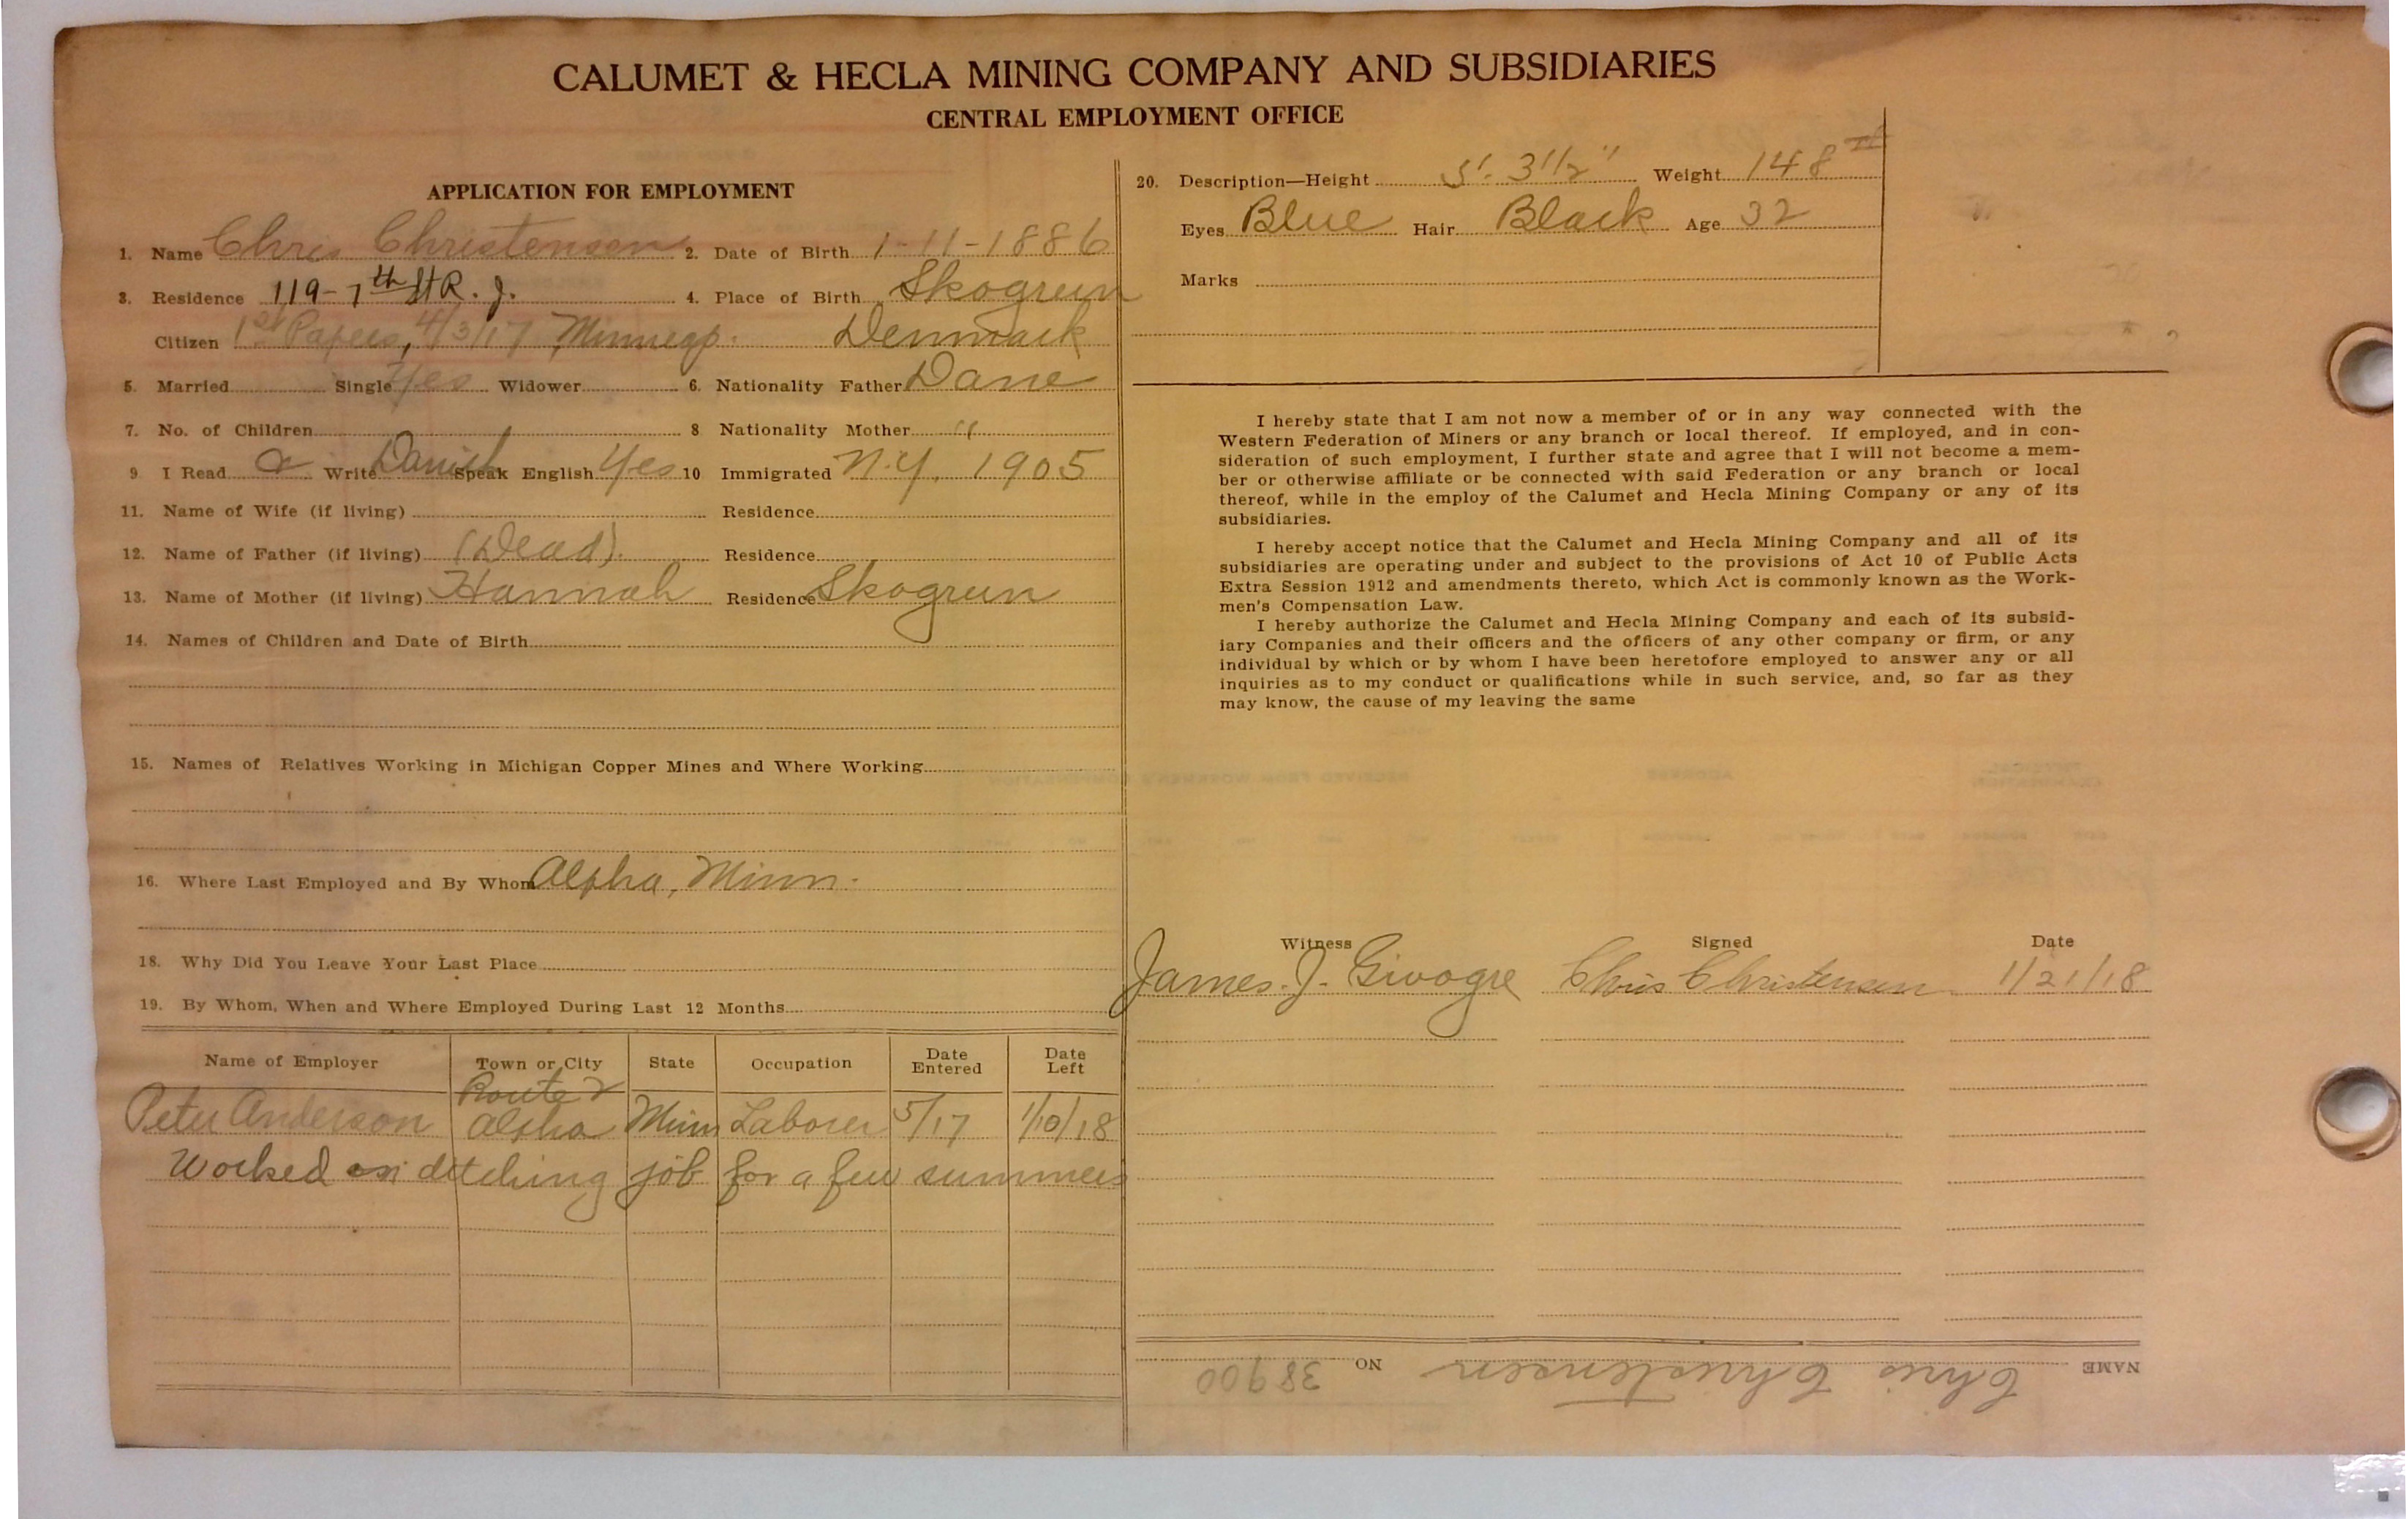 CALUMET & HECLA MINING COMPANY AND SUBSIDIARIES
CENTRAL EMPLOYMENT OFFICE
APPLICATION FOR EMPLOYMENT
1. Name Chris Christensen 2. Date of Birth 1-11-1886
3. Residence 119-7th St R. J. 4. Place of Birth Skogrun
Citizen 1st Papers, 4/3/17 Minneap. Denmark
5. Married Single Yes Widower 6. Nationality Father Dane
7. No. of Children 8 Nationality Mother "
9 I Read & Write Danish Speak English Yes 10 Immigrated N.Y. 1905
11. Name of Wife (if living) Residence
12. Name of Father (if living) (Dead). Residence
13. Name of Mother (if living) Hannah Residence Skogrun
14. Names of Children and Date of Birth
15. Names of Relatives Working in Michigan Copper Mines and Where Working
16. Where Last Employed and By Whom Alpha, Minn.
18. Why Did You Leave Your Last Place
19. By Whom, When and Where Employed During Last 12 Months
Name of Employer Town or City State Occupation Date Entered Date Left
Route 2
Peter Anderson Alpha Minn Laborer 5/17 1/10/18
Worked on ditching job for a few summers
20. Description—Height 5'. 3 1/2" Weight 148 #
Eyes Blue Hair Black Age 32
Marks
I hereby state that I am not now a member of or in any way connected with the
Western Federation of Miners or any branch or local thereof. If employed, and in con-
sideration of such employment, I further state and agree that I will not become a mem-
ber or otherwise affiliate or be connected with said Federation or any branch or local
thereof, while in the employ of the Calumet and Hecla Mining Company or any of its
subsidiaries.
I hereby accept notice that the Calumet and Hecla Mining Company and all of its
subsidiaries are operating under and subject to the provisions of Act 10 of Public Acts
Extra Session 1912 and amendments thereto, which Act is commonly known as the Work-
men's Compensation Law.
I hereby authorize the Calumet and Hecla Mining Company and each of its subsid-
iary Companies and their officers and the officers of any other company or firm, or any
individual by which or by whom I have been heretofore employed to answer any or all
inquiries as to my conduct or qualifications while in such service, and, so far as they
may know, the cause of my leaving the same
Witness Signed Date
James. J. Givogre Chris Christensen 1/21/18
NAME Chris Christensen NO 38900